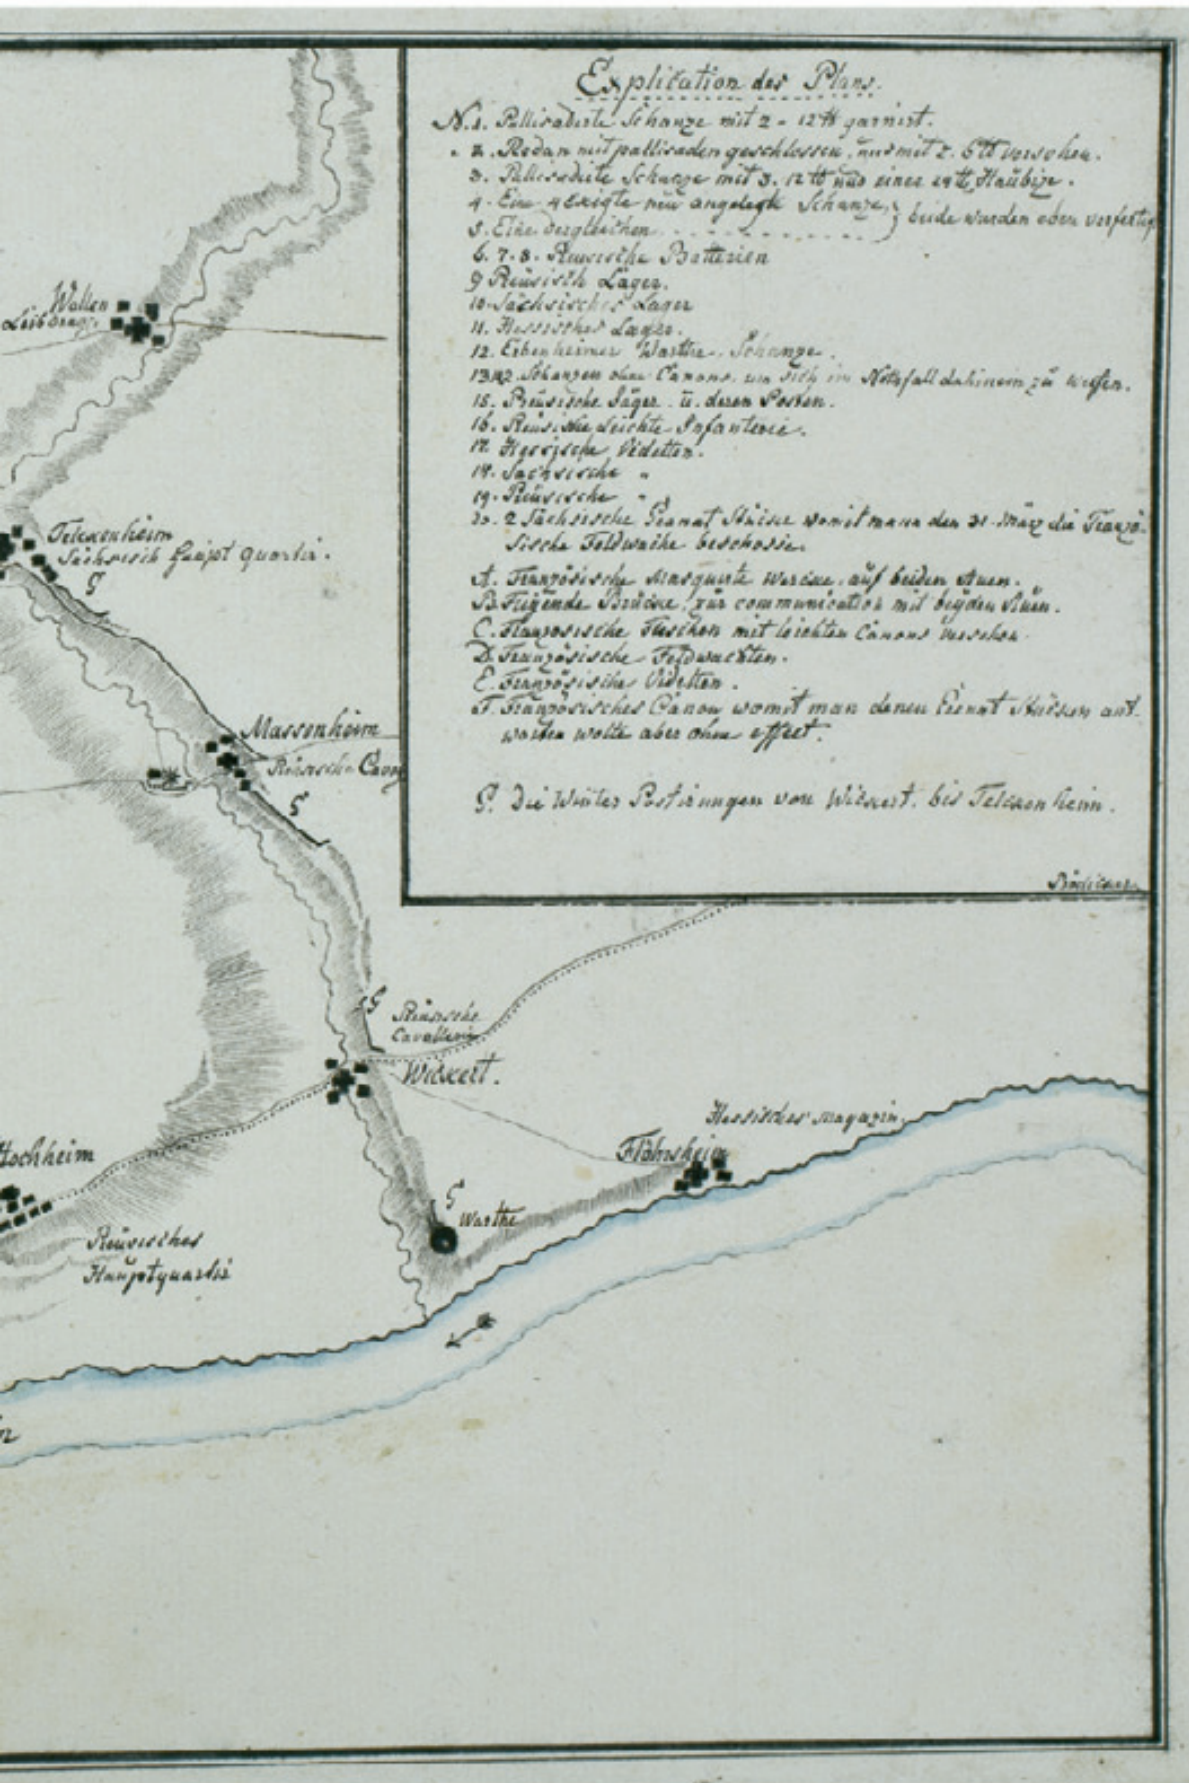 Explication des Plans.
N. 1. Pallisadirte Schanze mit 2 - 12 ℔ garnirt.
" 2. Redan mit pallisaden geschlossen, und mit 2. 6 ℔ versehen.
3. Pallisadirte Schanze mit 3. 12 ℔ und einer Haubize.
4. Eine 4 Ekigte neu angelegte Schanze,
5. Eine dergleichen
beide wurden eben verfertigt
6. 7. 8. Preusische Batterien
9 Preusisch Läger.
10. Sächsisches Lager
11. Hessisches Lager.
12. Erbenheimer Warthe. Schanze.
Schanzen ohne Canons, um sich im Nothfall dahinein zu werfen.
15. Preusische Jäger u. deren Posten.
16. Preusische Leichte Infanterie.
17. Hessische Vedetten.
18. Sächsische "
19. Preusische "
20. 2 Sächsische Granat Stücke womit mann den 31. März die Franzö-
sische Feldwache beschosse.
A. Französische Masquirte Wercke, auf beiden Auen.
B. Fligende Brücke, zur communication mit beyden Auen.
C. Französische Fleschen mit leichten Canons versehen.
D. Französische Feldwachten.
E. Französische Videtten.
F. Französisches Canon womit man denen Granat Stücken ant-
worten wolte aber ohne effect.
G. Die Winter Postirungen von Wickert. bis Delckenheim.
Wallen
Delckenheim
Sächsisch Haupt Quartir.
G
Massenheim
Preusische Cavall
G
G
Preusische
Cavallerie
Wickert.
Hessisches Magazin.
Flöhrsheim
Hochheim
G
Warthe
Preusisches
Hauptquartir